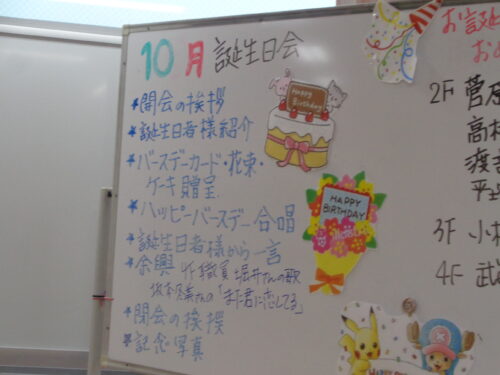 10月 誕生日会
*開会の挨拶
*誕生日者様紹介
*バースデーカード・花束・
ケーキ贈呈
*ハッピーバースデー合唱
*誕生日者様から一言
*余興 職員 堀井さんの歌
坂本冬美さんの「また君に恋してる」
*閉会の挨拶
*記念写真
Happy
Birthday
HAPPY
BIRTHDAY
お誕
2F 菅原
高村
渡
平
3F 小
4F 武